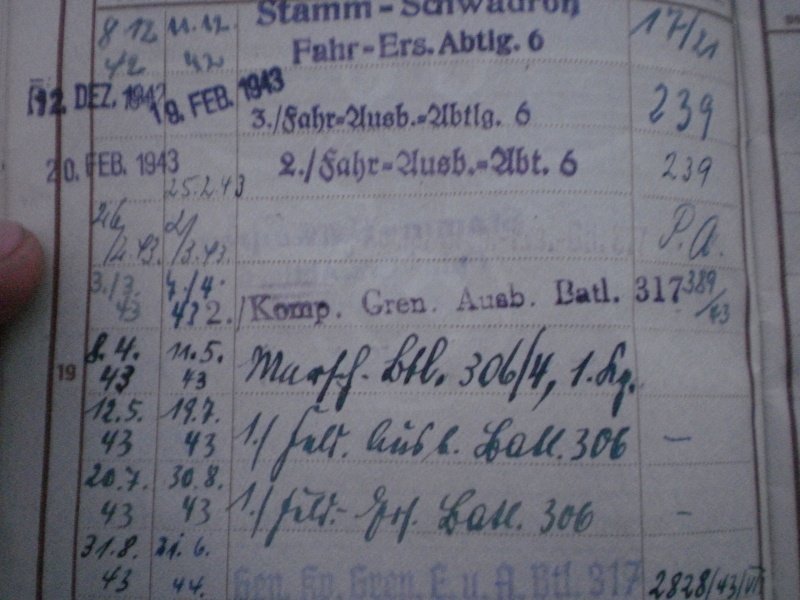 8.12. 42 11.12. 42 Stamm-Schwadron Fahr-Ers. Abtlg. 6 17/21
12. DEZ. 1942 19. FEB. 1943 3./Fahr-Ausb.-Abtlg. 6 239
20. FEB. 1943 25.2.43 2./Fahr-Ausb.-Abt. 6 239
26/2.43. 2/3.43. P.A.
3./3. 43 7./4. 43 2./Komp. Gren. Ausb. Batl. 317 389/43
19 8.4. 43 11.5. 43 Marsch-Btl. 306/4, 1. Kp.
12.5. 43 19.7. 43 1./ Feld. Ausb. Batl. 306 —
20.7. 43 30.8. 43 1./ Feld.- Batl. 306 -
31.8. 43 21.6. 44. Gen. Kp. Gren. E. u. A. Btl. 317 2828/43/VII